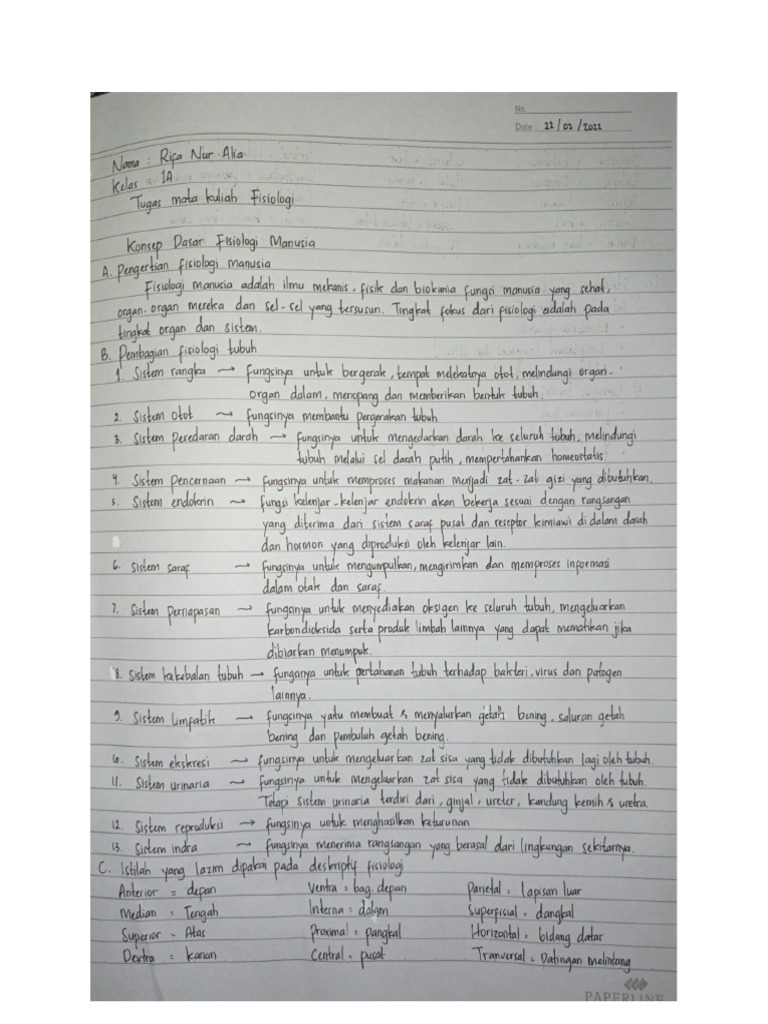 No.
Date : 22/02/2022
Nama : Rifa Nur Alia
Kelas : 1A
Tugas mata kuliah Fisiologi
Konsep Dasar Fisiologi Manusia
A. Pengertian fisiologi manusia
Fisiologi manusia adalah ilmu mekanis, fisik dan biokimia fungsi manusia yang sehat,
organ-organ mereka dan sel-sel yang tersusun. Tingkat fokus dari fisiologi adalah pada
tingkat organ dan sistem.
B. Pembagian fisiologi tubuh
1. Sistem rangka → fungsinya untuk bergerak, tempat melekatnya otot, melindungi organ-
organ dalam, menopang dan memberikan bentuk tubuh.
2. Sistem otot → fungsinya membantu pergerakan tubuh
3. Sistem peredaran darah → fungsinya untuk mengedarkan darah ke seluruh tubuh, melindungi
tubuh melalui sel darah putih, mempertahankan homeostatis
4. Sistem Pencernaan → fungsinya untuk memproses makanan menjadi zat-zat gizi yang dibutuhkan.
5. Sistem endokrin → fungsi kelenjar-kelenjar endokrin akan bekerja sesuai dengan rangsangan
yang diterima dari sistem saraf pusat dan reseptor kimiawi di dalam darah
dan hormon yang diproduksi oleh kelenjar lain.
6. Sistem saraf → fungsinya untuk mengumpulkan, mengirimkan dan memproses informasi
dalam otak dan saraf.
7. Sistem pernapasan → fungsinya untuk menyediakan oksigen ke seluruh tubuh, mengeluarkan
karbondioksida serta produk limbah lainnya yang dapat mematikan jika
dibiarkan menumpuk.
8. Sistem kekebalan tubuh → fungsinya untuk pertahanan tubuh terhadap bakteri, virus dan patogen
lainnya.
9. Sistem limfatik → fungsinya yaitu membuat & menyalurkan getah bening, saluran getah
bening dan pembuluh getah bening.
10. Sistem ekskresi → fungsinya untuk mengeluarkan zat sisa yang tidak dibutuhkan lagi oleh tubuh.
11. Sistem urinaria → fungsinya untuk mengeluarkan zat sisa yang tidak dibutuhkan oleh tubuh.
Tetapi sistem urinaria terdiri dari, ginjal, ureter, kandung kemih & uretra
12. Sistem reproduksi → fungsinya untuk menghasilkan keturunan
13. Sistem indra → fungsinya menerima rangsangan yang berasal dari lingkungan sekitarnya.
C. Istilah yang lazim dipakai pada deskriptif fisiologi
Anterior = depan Ventra = bag. depan Parietal = lapisan luar
Median = Tengah Interna = dalam Superficial = dangkal
Superior = Atas Proximal = pangkal Horizontal = bidang datar
Dextra = kanan Central = pusat Tranversal = Datingan Melintang
PAPERLINE